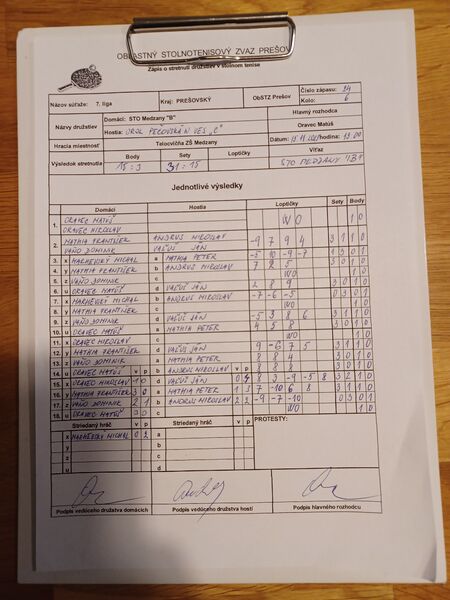 OBLASTNÝ STOLNOTENISOVÝ ZVÄZ PREŠOV
Zápis o stretnutí družstiev v stolnom tenise
Názov súťaže: 7. liga Kraj: PREŠOVSKÝ ObSTZ Prešov Číslo zápasu: 24
Kolo: 6
Názvy družstiev Domáci: STO Medzany "B" Hlavný rozhodca
Hostia: Oravec Matúš
Hracia miestnosť Telocvičňa ZŠ Medzany Dátum:
Výsledok stretnutia Body Sety Loptičky Víťaz
15:3 31:15 STO MEDZANY "B"
Jednotlivé výsledky
Domáci Hostia Loptičky Sety Body
1. ORAVEC MATÚŠ WO 1 0
ORAVEC MIROSLAV
2. MATHIA FRANTIŠEK ANDRUS MIROSLAV -9 7 9 4 3 1 1 0
VAŇO DOMINIK VALÚS JÁN
3. x a MATHIA PETER -5 10 -9 -7 1 3 0 1
4. y MATHIA FRANTIŠEK b ANDRUS MIROSLAV 7 2 5 3 0 1 0
5. z VAŇO DOMINIK c WO 1 0
6. u ORAVEC MATÚŠ d VALÚS JÁN 2 8 9 3 0 1 0
7. x b ANDRUS MIROSLAV -7 -6 -5 0 3 0 1
8. y MATHIA FRANTIŠEK c WO 1 0
9. z VAŇO DOMINIK d VALÚS JÁN -5 3 8 6 3 1 1 0
10. u ORAVEC MATÚŠ a MATHIA PETER 4 5 8 3 0 1 0
11. x ORAVEC MIROSLAV c WO 1 0
12. y MATHIA FRANTIŠEK d VALÚS JÁN 9 -6 7 5 3 1 1 0
13. z VAŇO DOMINIK a MATHIA PETER 8 8 4 3 0 1 0
14. u ORAVEC MATÚŠ v p b ANDRUS MIROSLAV v p 8 8 3 0 1 0
15. x ORAVEC MIROSLAV 1 0 d VALÚS JÁN 0 4 -9 -5 8 3 2 1 0
16. y MATHIA FRANTIŠEK 3 0 a MATHIA PETER 1 3 7 -10 6 8 3 1 1 0
17. z VAŇO DOMINIK 2 1 b ANDRUS MIROSLAV 2 2 -9 -7 -10 0 3 0 1
18. u ORAVEC MATÚŠ 3 0 c WO 1 0
Striedaný hráč v p Striedaný hráč v p PROTESTY:
x 0 2 a
y b
z c
u d
Podpis vedúceho družstva domácich Podpis vedúceho družstva hostí Podpis hlavného rozhodcu